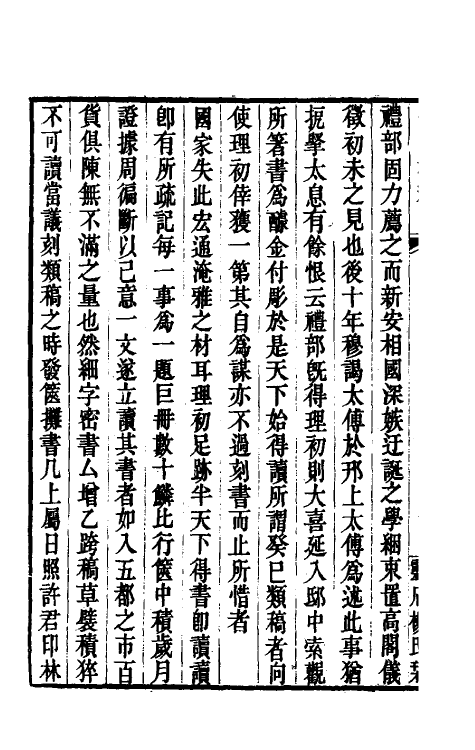 禮部固力薦之而新安相國深嫉迂誕之學綑束置高閣儀
徵初未之見也後十年穆謁太傅於邗上太傅爲述此事猶
扼擥太息有餘恨云禮部旣得理初則大喜延入邸中索觀
所箸書爲醵金付彫於是天下始得讀所謂癸巳類稿者向
使理初倖獲一第其自爲謀亦不過刻書而止所惜者
國家失此宏通淹雅之材耳理初足跡半天下得書卽讀讀
卽有所疏記每一事爲一題巨冊數十鱗比行篋中積歲月
證據周徧斷以己意一文遂立讀其書者如入五都之市百
貨俱陳無不滿之量也然細字密書厶增乙跨稿草襞積猝
不可讀當議刻類稿之時發篋攤書几上屬日照許君印林